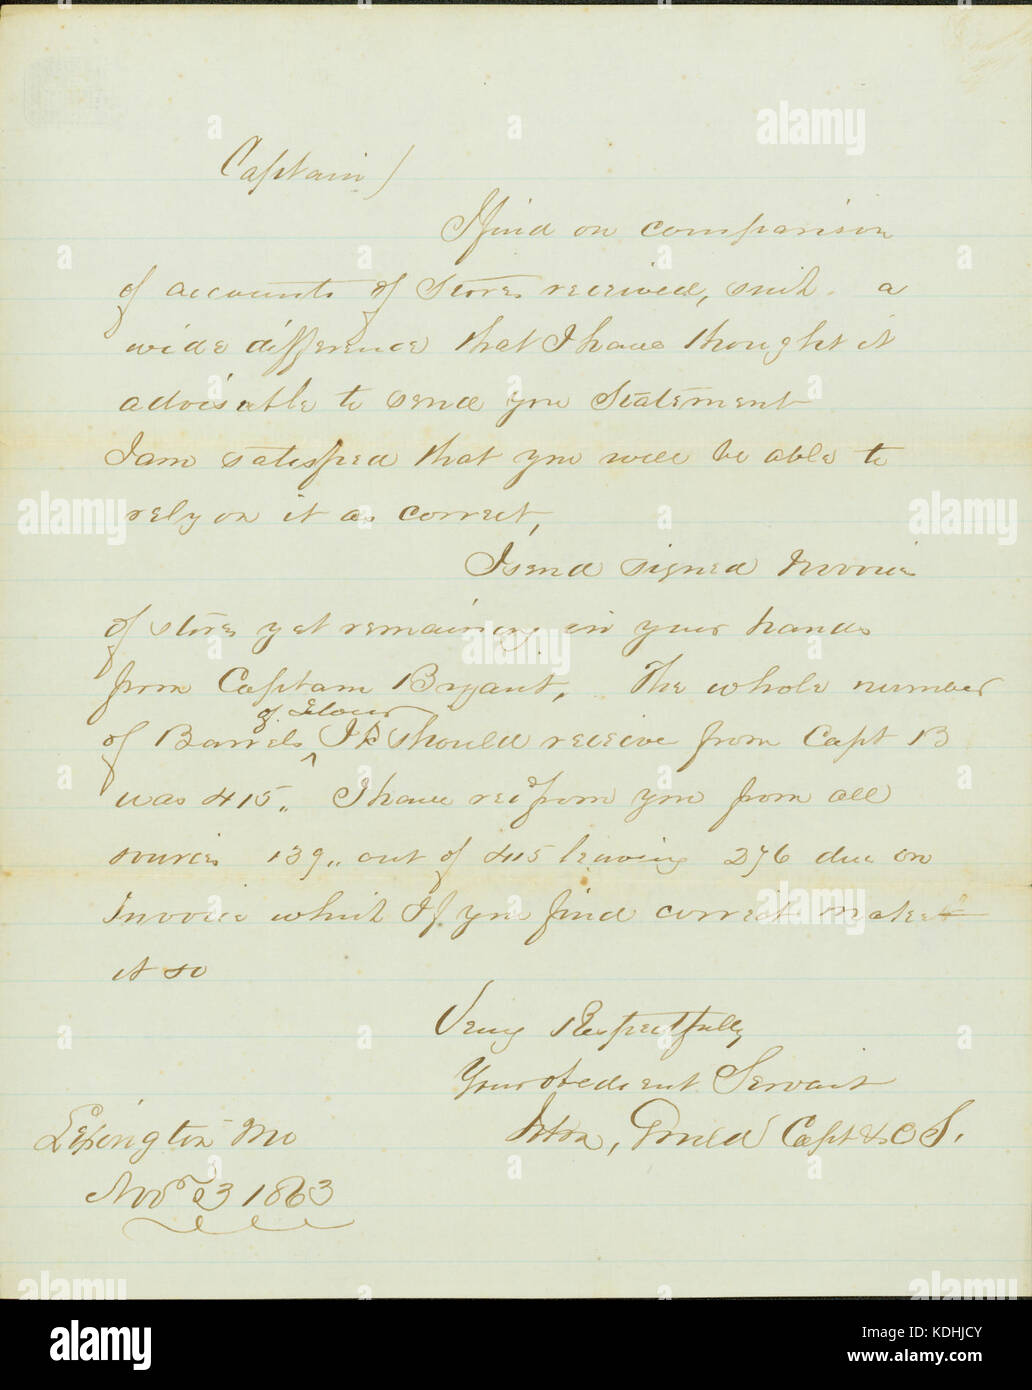 Captain)
I find on comparison
of accounts of Stores received, such a
wide difference that I have thought it
advisable to send you Statement
I am satisfied that you will be able to
rely on it as correct,
I send signed Invoice
of stores yet remaining in your hands
from Captain Bryant, The whole number
of Flour
of Barrels I should receive from Capt B
was 415,, I have recd from you from all
sources 139,, out of 415 leaving 276 due on
Invoice which If you find correct make
it so
Very Respectfully
Your obedient Servant
Capt & C S.
Lexington Mo
Novr 23 1863
alamy
Image ID: KDHJCY
www.alamy.com